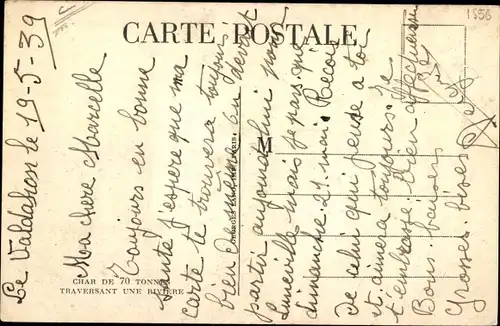 1556
CARTE POSTALE
Le Valdahon le 19-5-39
Ma chere Marcelle
Toujours en bonne
santé j'espere que ma
carte te trouvera toujours
bien
partir aujourd'hui pour
Luneville mais je pars que
dimanche 21 mai. Reçois
de celui qui pense a toi
et aimera toujours. Je
t'embrasse bien affectueusement
Bons baisers
Grosses bises
M
CHAR DE 70 TONNES
TRAVERSANT UNE RIVIÈRE